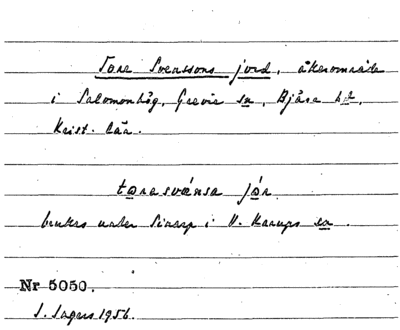 Tore Svenssons jord, åkerområde
i Salomonhög, Grevie sn, Bjäre hd,
Krist. län.
toresvänsa jor
brukas under Sinarp i V. Karups sn.
Nr 5050.
S. Sagnes 1956.